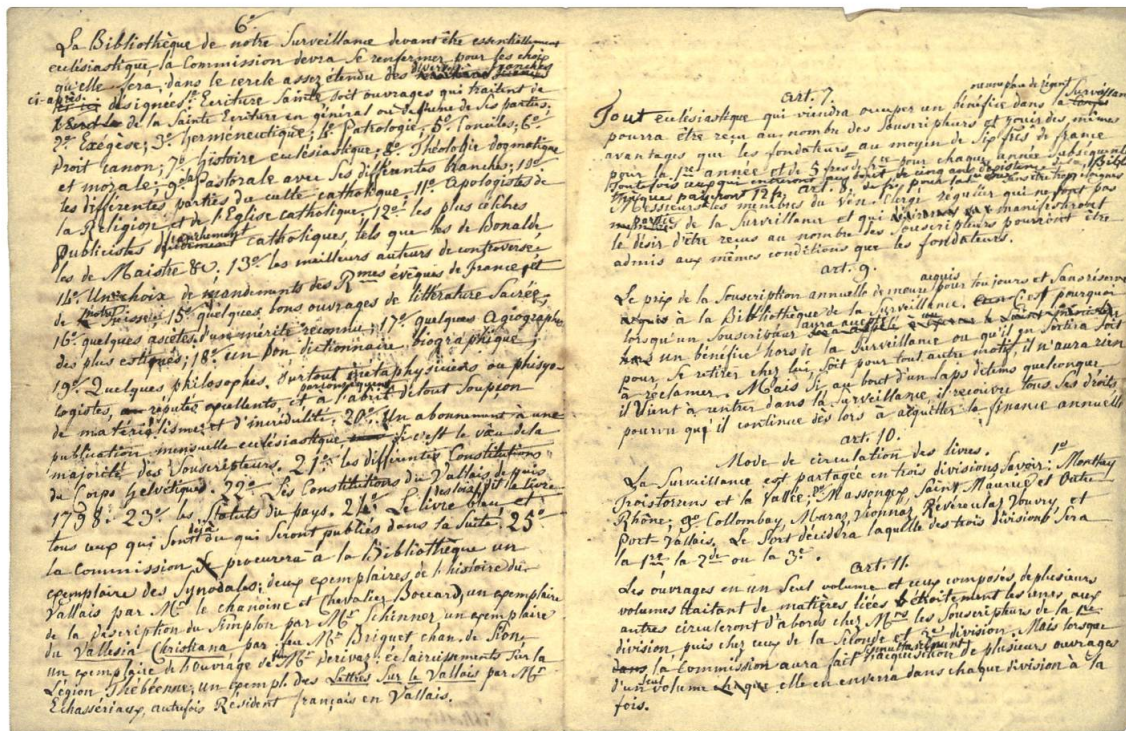 6º
La Bibliothèque de notre Surveillance devant être essentiellement
ecclésiastique la Commission devra se renfermer pour les choix
qu'elle fera, dans le cercle assez étendu des diverses branches
ci-après désignées: 1º Ecriture Sainte, soit ouvrages qui traitent de
de la Sainte Ecriture en général ou d'une de ses parties;
2º Exégèse; 3º herméneutique; 4º Patrologie; 5º Conciles; 6º
Droit canon; 7º histoire ecclésiastique; 8º Théologie dogmatique
et morale; 9º la Pastorale avec ses différentes branches; 10º
les différentes parties du culte catholique; 11º Apologistes de
la Religion et de l'Eglise catholique. 12º les plus célèbres
publicistes franchement catholiques, tels que les de Bonald,
les de Maistre &c. 13º les meilleurs auteurs de controverse
14º Un choix de mandements des Rmes évêques de France, et
de notre Suisse; 15º quelques bons ouvrages de littérature Sacrée,
16º quelques ascètes, d'un mérite reconnu; 17º quelques agiographes
des plus estimés; 18º un bon dictionnaire biographique;
19º Quelques philosophes, surtout métaphysiciens ou phisyo-
logistes, réputés excellents, et par conséquent à l'abri de tout soupçon
de matérialisme et d'incrédulité. 20º Un abonnement à une
publication mensuelle ecclésiastique si c'est le vœu de la
majorité des Souscripteurs. 21º les différentes Constitutions
du Corps helvétique. 22º Les Constitutions du Vallais depuis
1798. 23º les Statuts du pays. 24º Le livre bleu et
tous ceux qui sont déjà ou qui seront publiés dans la suite. 25º
la Commission procurera à la Bibliothèque un
exemplaire des Synodales; deux exemplaires de l'histoire du
Vallais par Mr le chanoine et Chevalier Boccard, un exemplaire
de la description du Simplon par Mr Schinner un exemplaire
du Vallesia Christiana par feu Mr Briguet chan. de Sion,
un exemplaire de l'ouvrage de feu Mr derivaz: éclaircissements sur la
Légion Thébéenne; un exempl. des Lettres Sur le Vallais par Mr
Echassériaux, autrefois Résident français en Vallais.
Art. 7.
Tout ecclésiastique qui viendra occuper un bénéfice dans la Surveillance
pourra être reçu au nombre des Souscripteurs et jouir des mêmes
avantages que les fondateurs au moyen de six frcs de france
pour la 1re année et de 5 frcs de fce pour chaque année subséquente
Toutefois ceux qui
Art. 8.
Messieurs les membres du Vén. Clergé régulier qui ne font pas
partie de la Surveillance et qui manifesteront
le désir d'être reçus au nombre des Souscripteurs pourront être
admis aux mêmes conditions que les fondateurs.
art. 9.
Le prix de la Souscription annuelle demeure acquis pour toujours et sans réserve
à la Bibliothèque de la Surveillance. C'est pourquoi
lorsqu'un Souscripteur aura accepté
un bénéfice hors de la Surveillance ou qu'il en sortira soit
pour se retirer chez lui, soit pour tout autre motif, il n'aura rien
à réclamer. Mais si, au bout d'un laps de tems quelconque
il vient à rentrer dans la Surveillance, il recouvre tous ses droits,
pourvu qu'il continue dès lors à acquitter la finance annuelle
art. 10.
Mode de circulation des livres.
La Surveillance est partagée en trois divisions, Savoir: 1º Monthey
Troistorrens et la Vallée; 2º Massongex, Saint Maurice et Outre
Rhône; 3º Collombay, Muraz, Vionnaz, Révéreulaz, Vouvry et
Port Vallais. Le Sort décidera laquelle des trois divisions sera
la 1re la 2de ou la 3e.
Art. 11.
Les ouvrages en un seul volume et ceux composés de plusieurs
volumes traitant de matières liées étroitement les unes aux
autres circuleront d'abord chez Mrs les Souscripteurs de la 1re
division puis chez ceux de la Seconde et 3e division. Mais lorsque
la Commission aura fait l'acquisition de plusieurs ouvrages
d'un seul volume elle en enverra dans chaque division à la
fois.